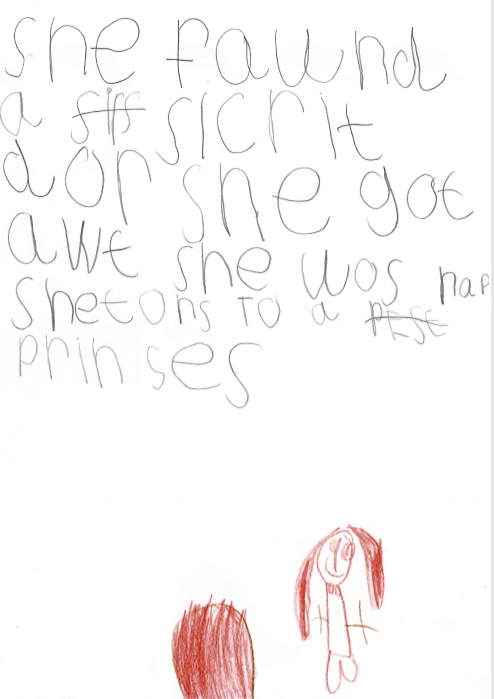 she faund
a siff sicrit
dor she got
awt she wos hap
shetons to a
prinses